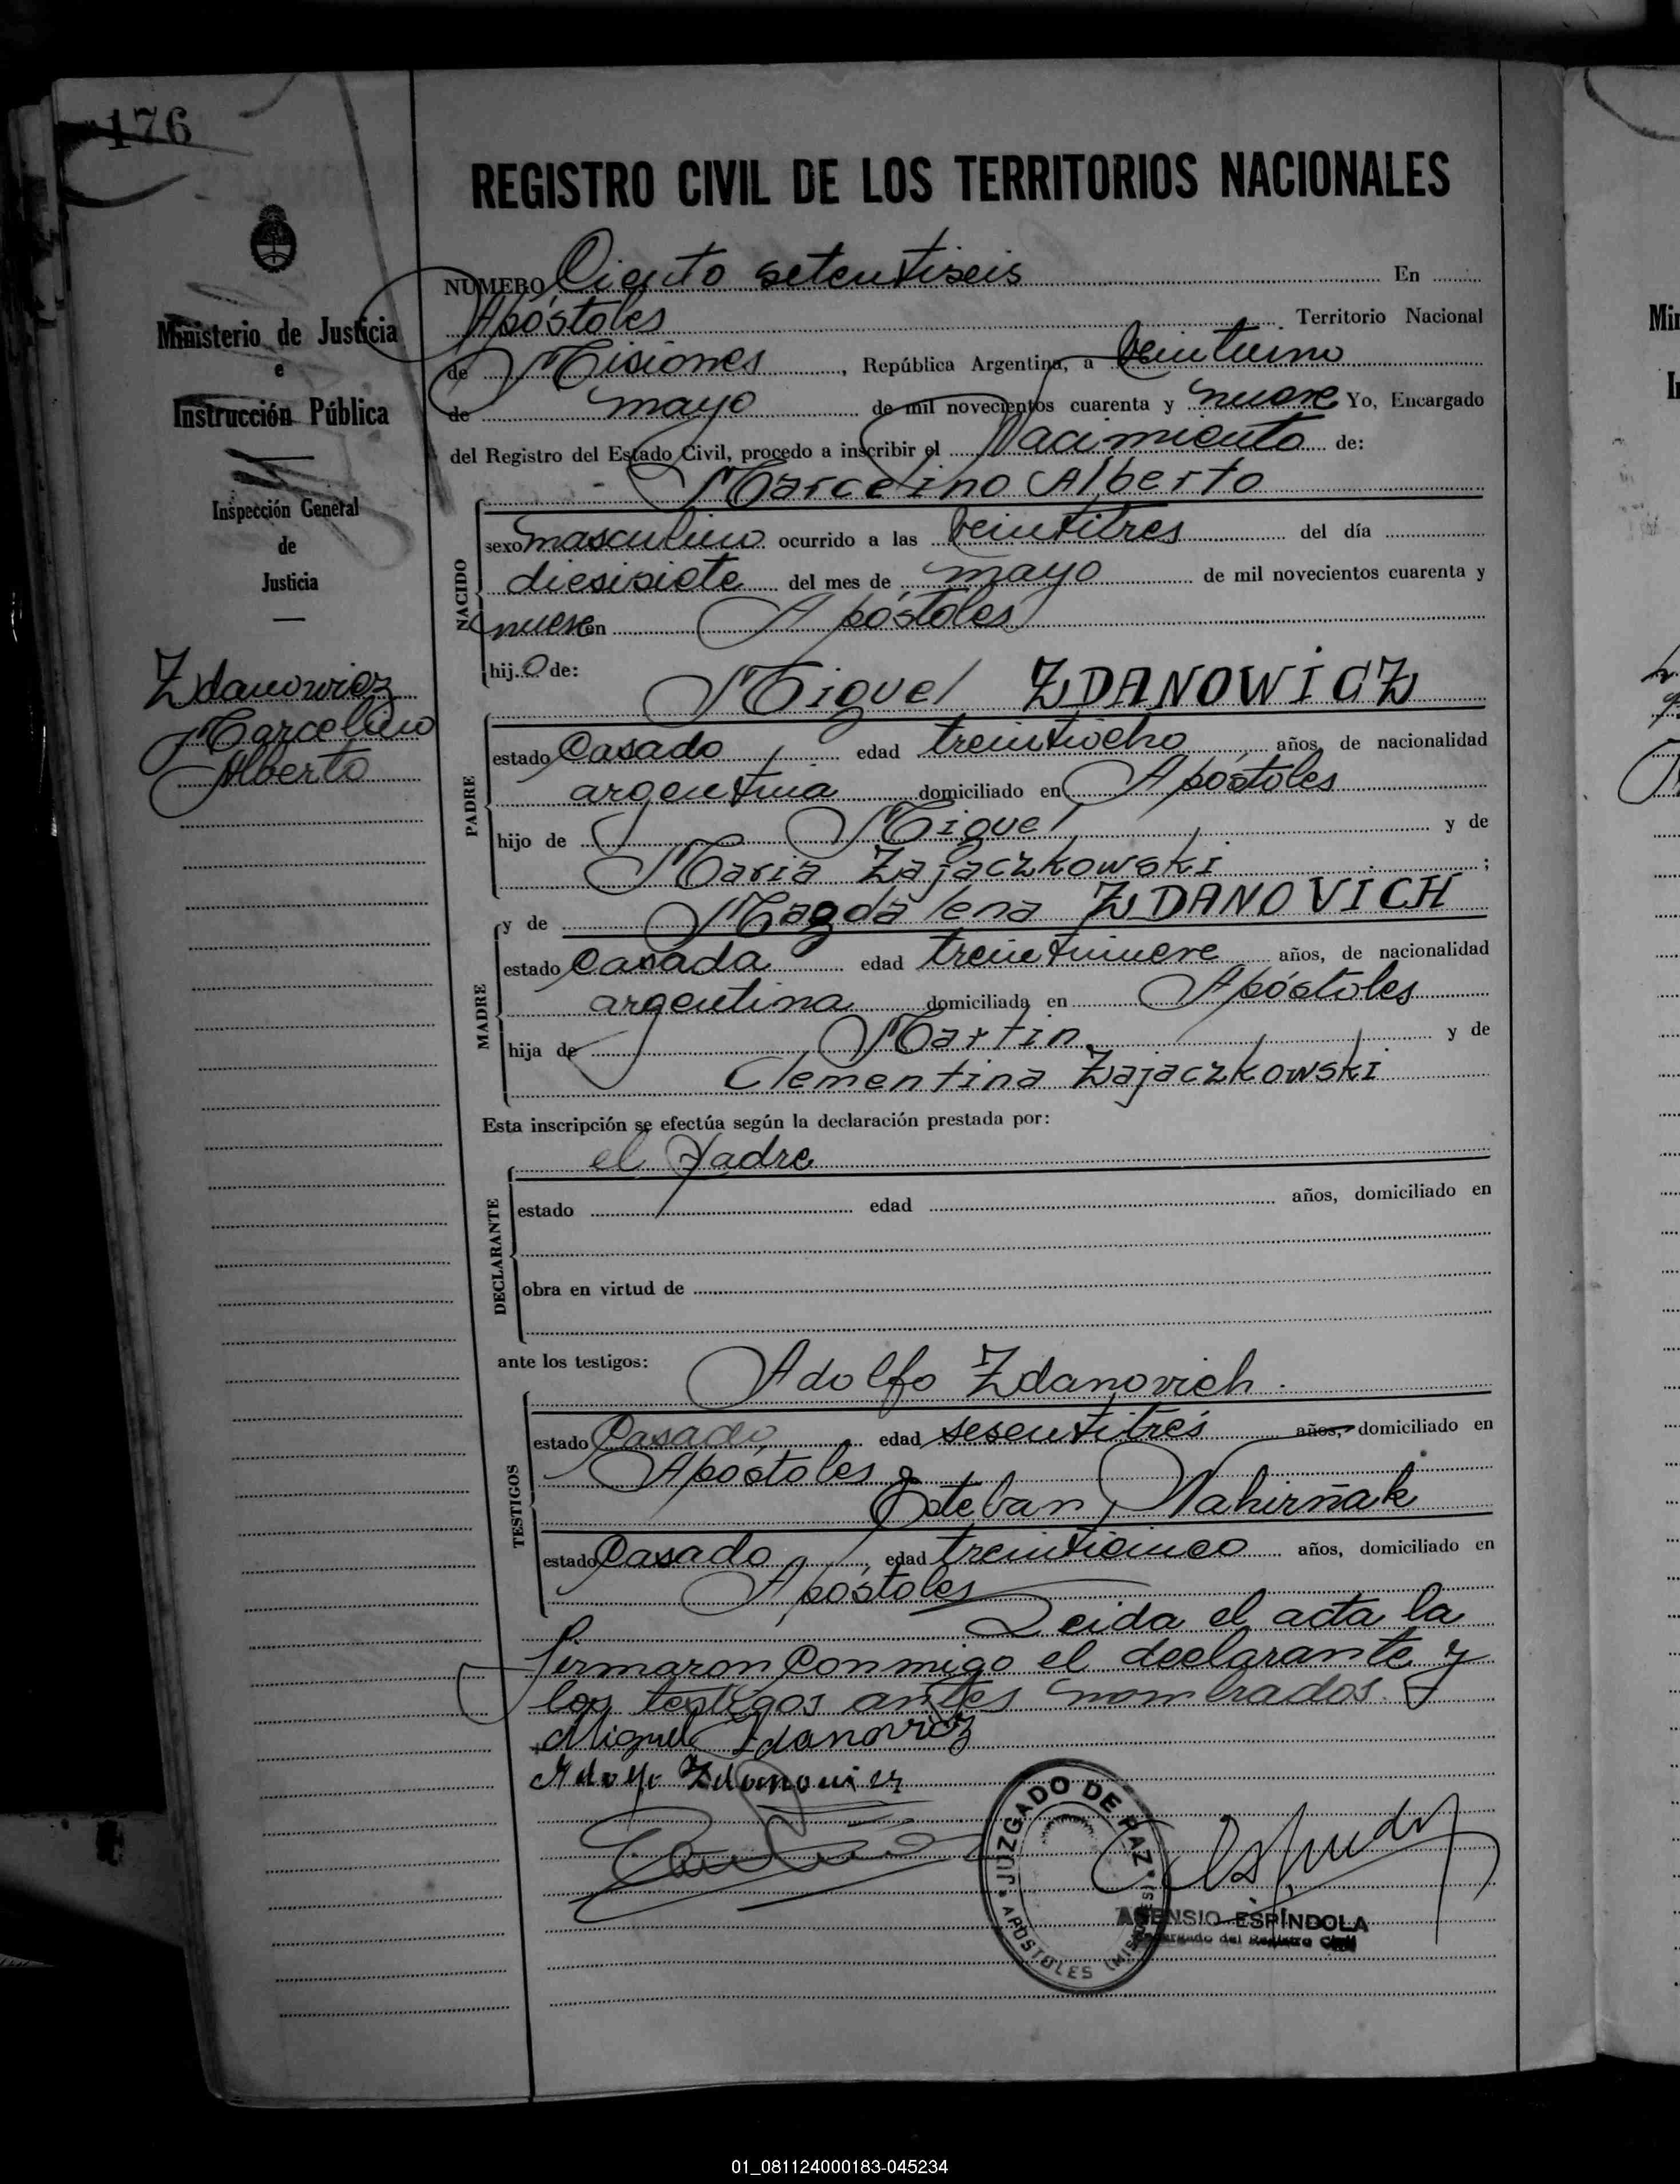 176
REGISTRO CIVIL DE LOS TERRITORIOS NACIONALES
NUMERO Ciento setentiseis En
Apóstoles Territorio Nacional
de Misiones, República Argentina, a veintiuno
de mayo de mil novecientos cuarenta y nueve Yo, Encargado
del Registro del Estado Civil, procedo a inscribir el Nacimiento de:
Marcelino Alberto
NACIDO
sexo masculino ocurrido a las veintitres del día
diesisiete del mes de mayo de mil novecientos cuarenta y
nueve en Apóstoles
hij o de:
Miguel ZDANOWICZ
PADRE
estado Casado edad treintiocho años, de nacionalidad
argentina domiciliado en Apóstoles
hijo de Miguel y de
Maria Zajaczkowski ;
y de Magdalena ZDANOVICH
MADRE
estado Casada edad treintinueve años, de nacionalidad
argentina domiciliada en Apóstoles
hija de Martin y de
Clementina Zajaczkowski
Esta inscripción se efectúa según la declaración prestada por:
el Padre
DECLARANTE
estado edad años, domiciliado en
obra en virtud de
ante los testigos:
Adolfo Zdanovich
TESTIGOS
estado Casado edad sesentitrés años, domiciliado en
Apóstoles
Esteban Nahirñak
estado Casado edad treinticinco años, domiciliado en
Apóstoles
Leida el acta la
firmaron conmigo el declarante y
los testigos antes nombrados.
Miguel Zdanovicz
Adolfo Zdanowicz
JUZGADO DE PAZ
APOSTOLES (MISIONES)
ASENSIO ESPÍNDOLA
Encargado del Registro Civil
Ministerio de Justicia
e
Instrucción Pública
Inspección General
de
Justicia
Zdanowicz
Marcelino
Alberto
01_081124000183-045234